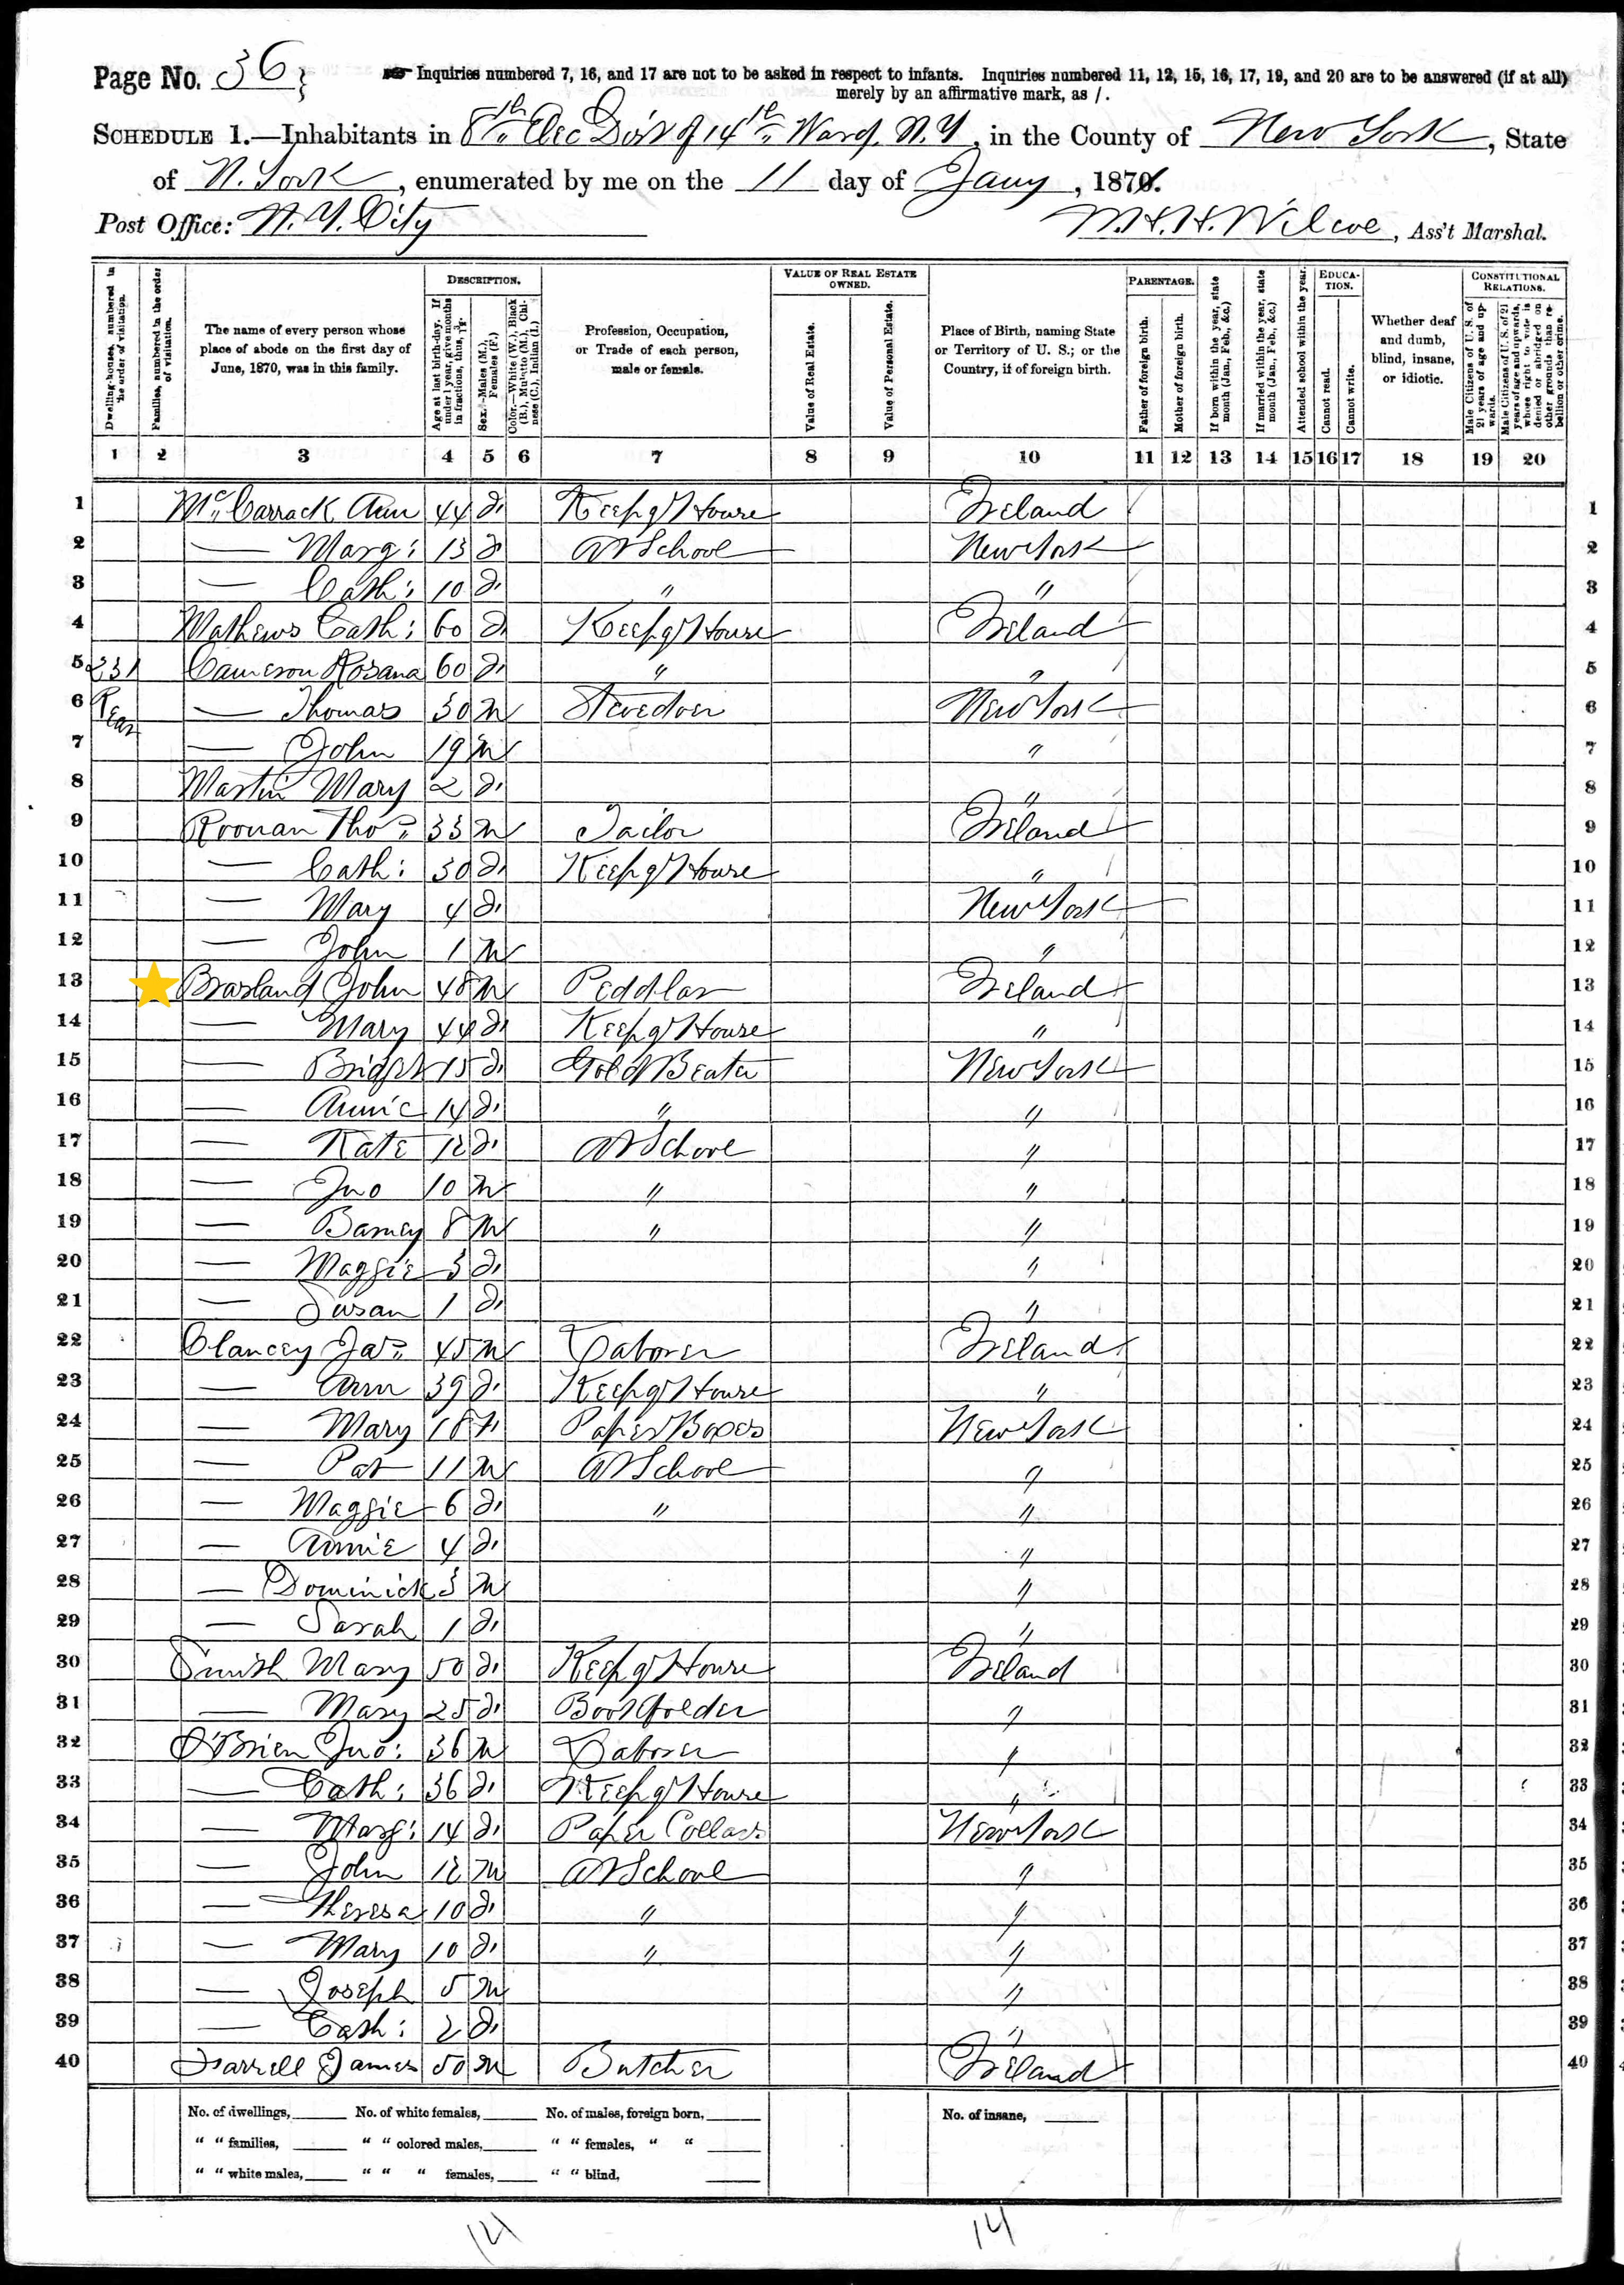 Page No. 36}
Inquiries numbered 7, 16, and 17 are not to be asked in respect to infants. Inquiries numbered 11, 12, 15, 16, 17, 19, and 20 are to be answered (if at all)
merely by an affirmative mark, as /.
SCHEDULE 1.—Inhabitants in 8th Elec Dist of 14th Ward. N.Y, in the County of New York, State
of N. York, enumerated by me on the 11 day of Jany, 1870.
Post Office: N. Y. City
Ass't Marshal.
DESCRIPTION.
VALUE OF REAL ESTATE OWNED.
PARENTAGE.
EDUCATION.
CONSTITUTIONAL RELATIONS.
Dwelling-houses, numbered in the order of visitation.
Families, numbered in the order of visitation.
The name of every person whose place of abode on the first day of June, 1870, was in this family.
Age at last birth-day. If under 1 year, give months in fractions, thus, 3/12.
Sex.—Males (M.), Females (F.)
Color.—White (W.), Black (B.), Mulatto (M.), Chinese (C.), Indian (I.)
Profession, Occupation, or Trade of each person, male or female.
Value of Real Estate.
Value of Personal Estate.
Place of Birth, naming State or Territory of U. S.; or the Country, if of foreign birth.
Father of foreign birth.
Mother of foreign birth.
If born within the year, state month (Jan., Feb., &c.)
If married within the year, state month (Jan., Feb., &c.)
Attended school within the year.
Cannot read.
Cannot write.
Whether deaf and dumb, blind, insane, or idiotic.
Male Citizens of U. S. of 21 years of age and upwards.
Male Citizens of U. S. of 21 years of age and upwards, whose right to vote is denied or abridged on other grounds than rebellion or other crime.
1 2 3 4 5 6 7 8 9 10 11 12 13 14 15 16 17 18 19 20
1 McCarrack Ann 44 F Keepg House Ireland 1
2 — Marg: 13 F At School New York 2
3 — Cath: 10 F " " 3
4 Mathews Cath: 60 F Keepg House Ireland 4
5 231 Cameron Rosana 60 F " " 5
6 Rear — Thomas 30 M Stevedore New York 6
7 — John 19 M " 7
8 Martin Mary 2 F " 8
9 Roonan Thos 33 M Tailor Ireland 9
10 — Cath: 30 F Keepg House " 10
11 — Mary 4 F New York 11
12 — John 1 M " 12
13 Brasland John 48 M Peddlar Ireland 13
14 — Mary 44 F Keepg House " 14
15 — Bridget 15 F Gold Beater New York 15
16 — Annie 14 F " " 16
17 — Kate 12 F At School " 17
18 — Jno 10 M " " 18
19 — Barney 8 M " " 19
20 — Maggie 3 F " 20
21 — Susan 1 F " 21
22 Clancey Jas 45 M Laborer Ireland 22
23 — Ann 39 F Keepg House " 23
24 — Mary 18 F Paper Boxes New York 24
25 — Pat 11 M At School " 25
26 — Maggie 6 F " " 26
27 — Annie 4 F " 27
28 — Dominick 3 M " 28
29 — Sarah 1 F " 29
30 Smith Mary 50 F Keepg House Ireland 30
31 — Mary 25 F Book folder " 31
32 O'Brien Jno: 36 M Laborer " 32
33 — Cath: 36 F Keepg House " 33
34 — Marg: 14 F Paper Collars New York 34
35 — John 12 M At School " 35
36 — Theresa 10 F " " 36
37 — Mary 10 F " " 37
38 — Joseph 5 M " 38
39 — Cath: 2 F " 39
40 Farrell James 50 M Butcher Ireland 40
No. of dwellings, No. of white females, No. of males, foreign born, No. of insane,
" " families, " " colored males, " " females, " "
" " white males, " " " females, " " blind,
14 14